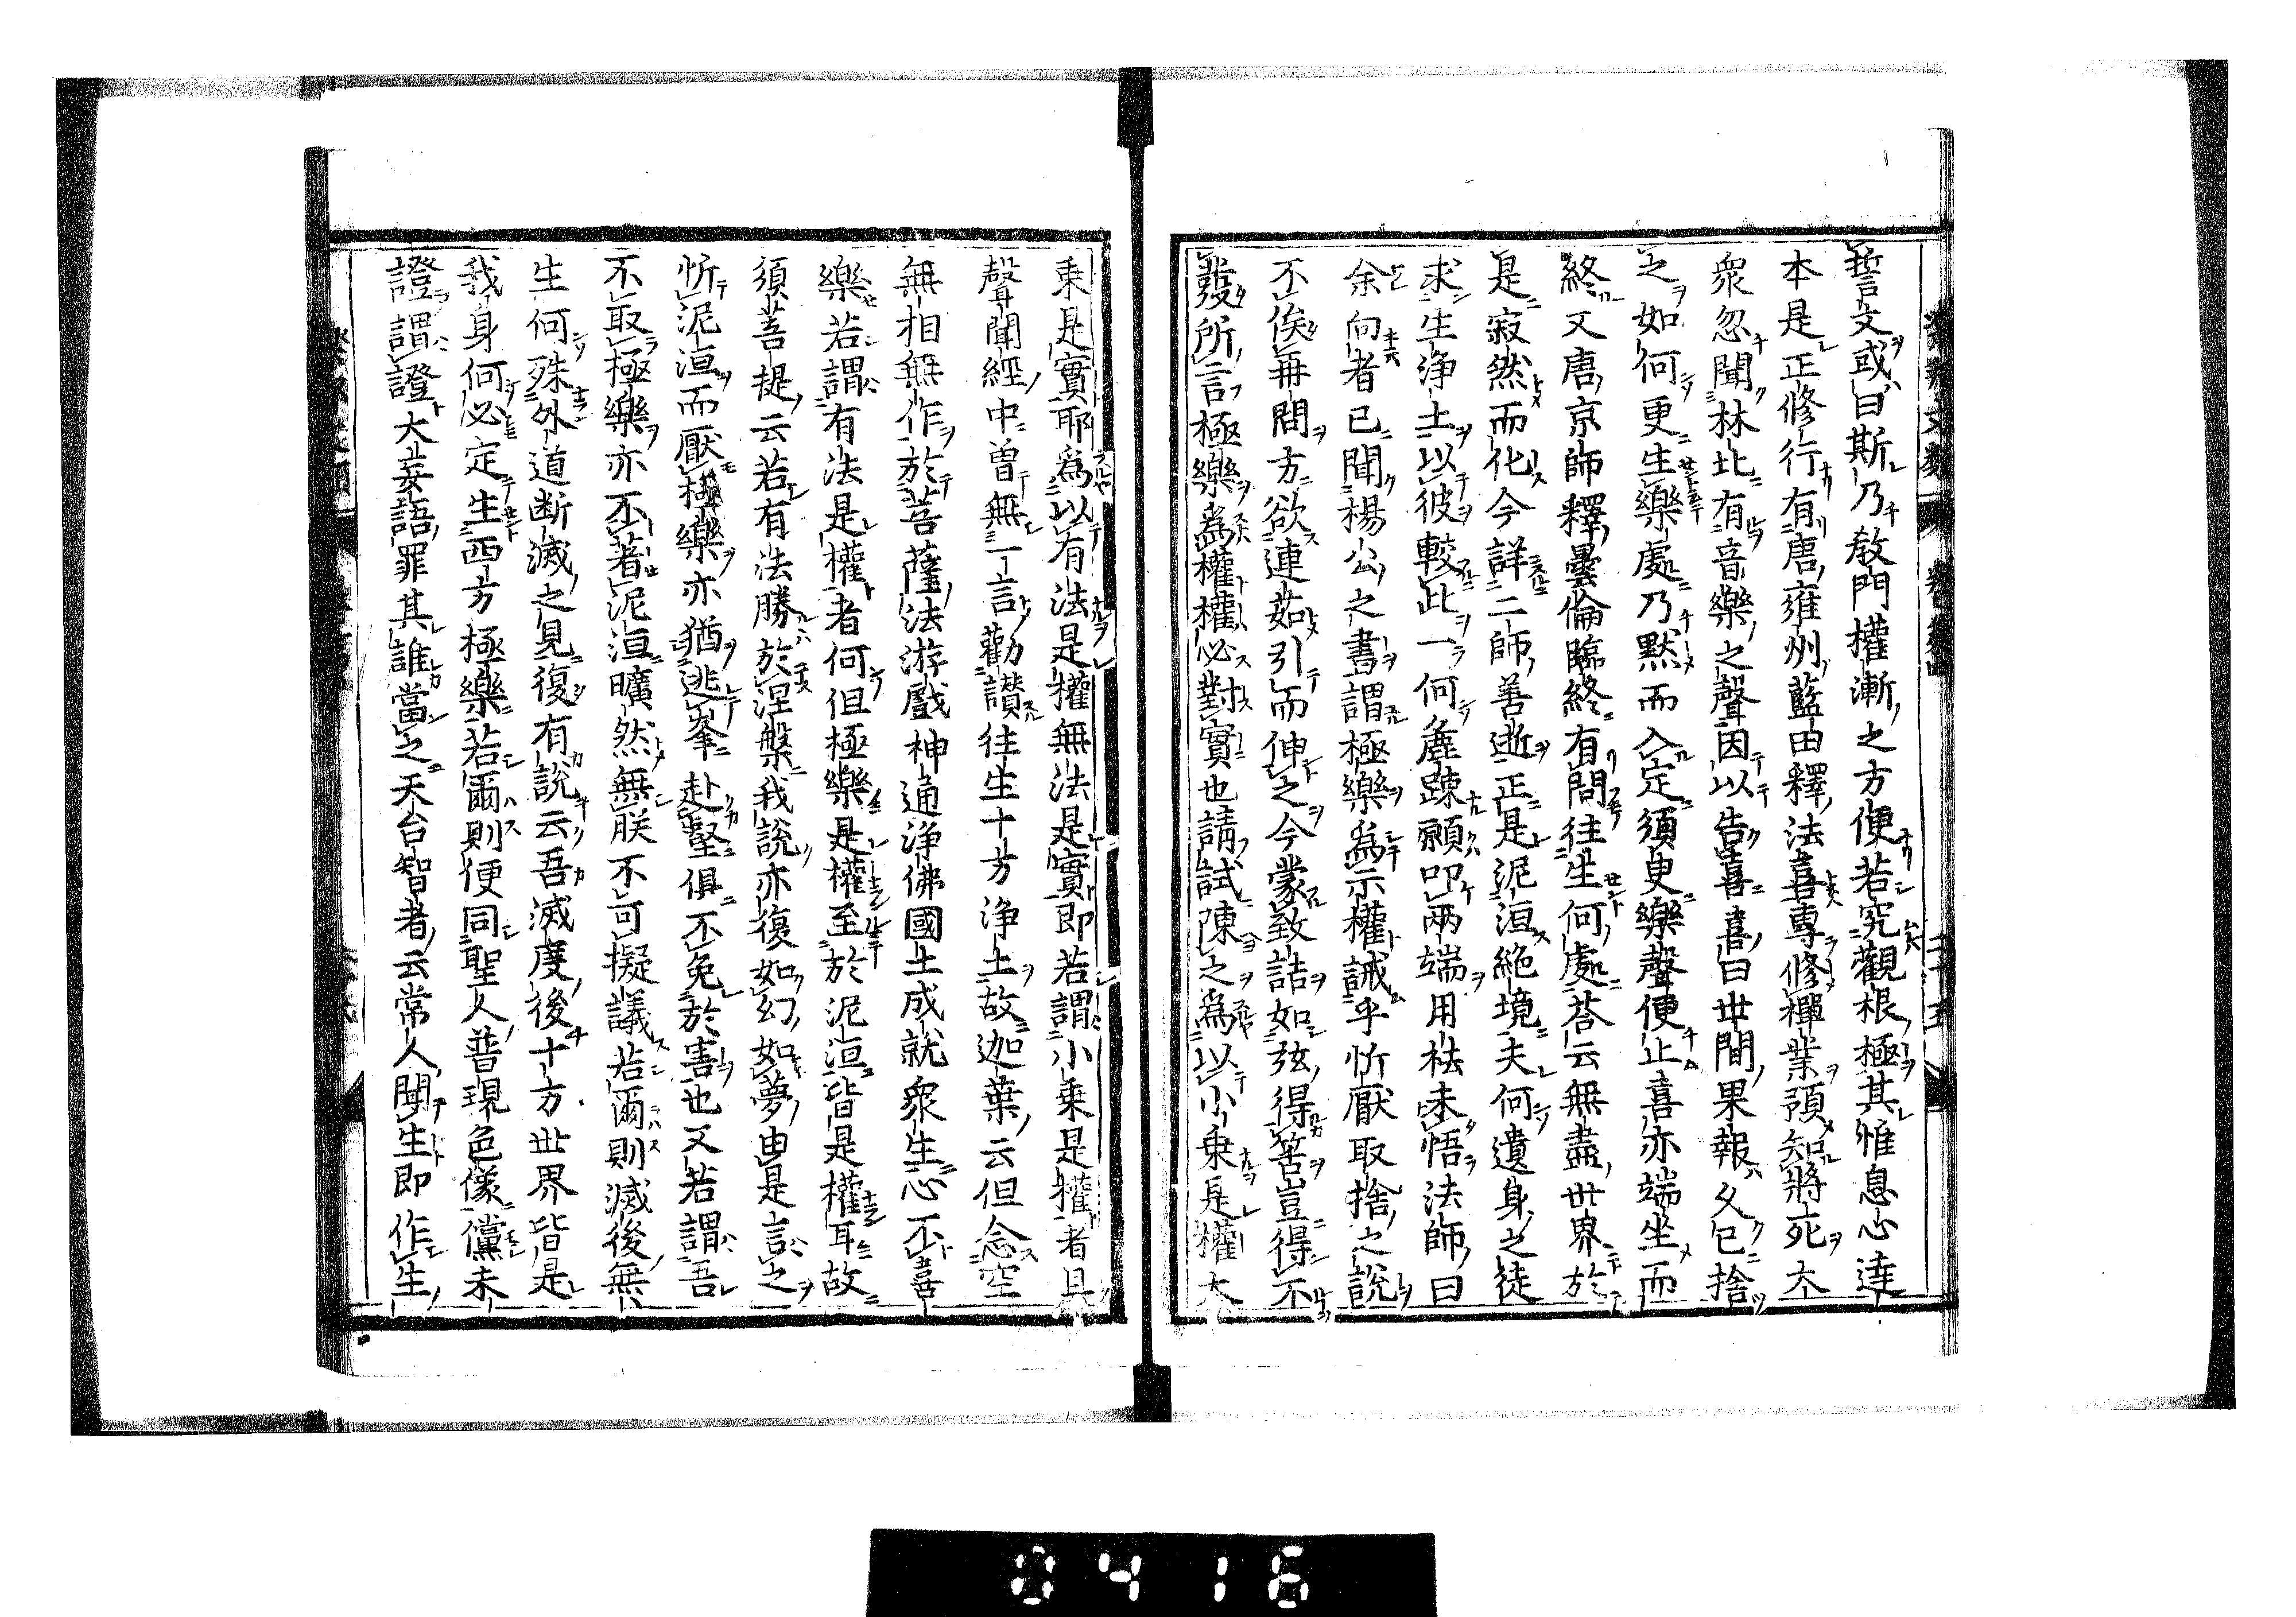 誓文或曰斯乃教門權漸之方便若究觀根極其惟息心達
本是正修行有唐雍州藍田釋法喜專修禪業預知將死大
衆忽聞林北有音樂之聲因以告喜喜曰世間果報久已捨
之如何更生樂處乃默而入定須臾樂聲便止喜亦端坐而
終又唐京師釋曇倫臨終有問往生何處荅云無盡世界於
是寂然而化今詳二師善逝正是泥洹絶境夫何遺身之徒
求生浄土以彼較此一何麁踈願叩兩端用袪未悟法師曰
余向者已聞楊公之書謂極樂爲示權誡乎忻厭取捨之說
不俟毎間方欲連茹引而伸之今蒙致詰如弦得筈豈得不
發所言極樂爲權權必對實也請試陳之爲以小乗是權大
乗是實耶爲以有法是權無法是實即若謂小乗是權者且
聲聞經中曽無一言勸讃往生十方浄土故迦葉云但念空
無相無作於菩薩法游戲神通浄佛國土成就衆生心不喜
樂若謂有法是權者何但極樂是權至於泥洹皆是權耳故
須菩提云若有法勝於涅槃我說亦復如幻如夢由是言之
忻泥洹而厭極樂亦猶逃峯赴壑俱不免於害也又若謂吾
不取極樂亦不著泥洹曠然無朕不可擬議若爾則滅後無
生何殊外道断滅之見復有說云吾滅度後十方世界皆是
我身何必定生西方極樂若爾則便同聖人普現色像儻未
證謂證大妄語罪其誰當之天台智者云常人聞生即作生
0416